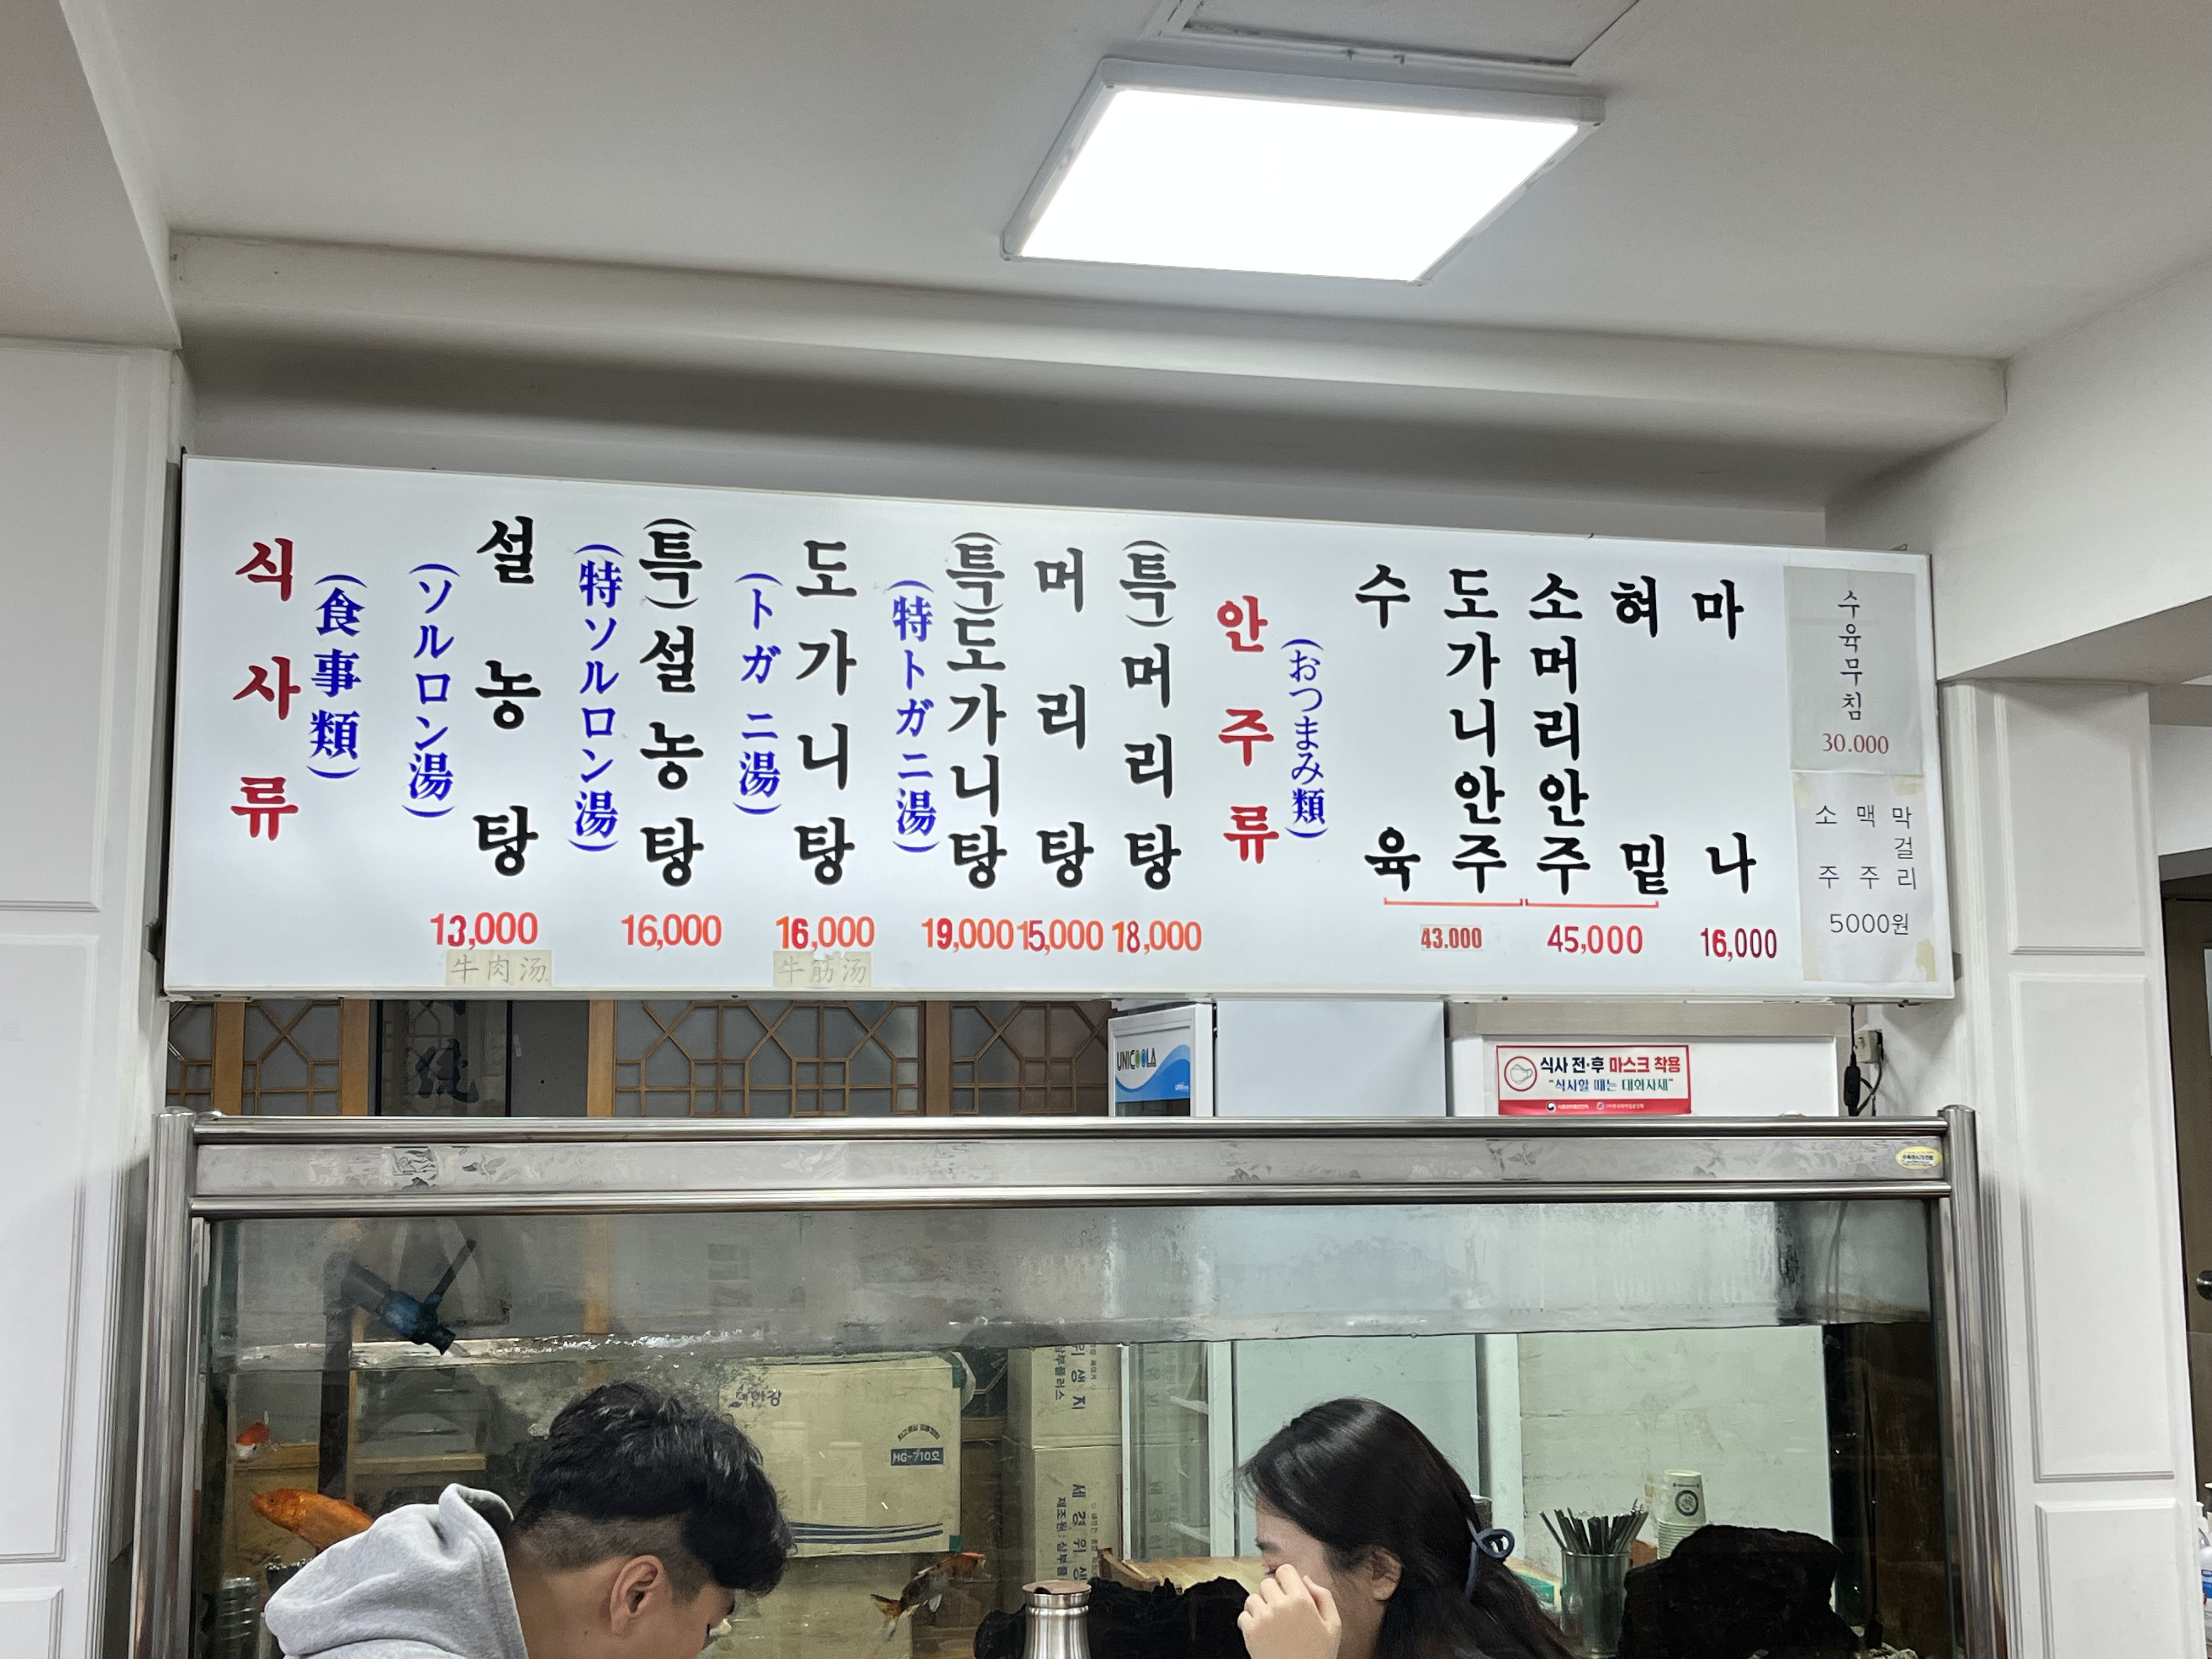 식사류
(食事類)
설농탕
(ソルロン湯)
13,000
牛肉汤
(특)설농탕
(特ソルロン湯)
16,000
도가니탕
(トガニ湯)
16,000
牛筋汤
(특)도가니탕
(特トガニ湯)
19,000
머리탕
15,000
(특)머리탕
18,000
안주류
(おつまみ類)
수육
도가니안주
소머리안주
혀밑
43.000
45,000
마나
16,000
수육무침
30.000
소주
맥주
막걸리
5000원
UNICOOLA
식사 전·후 마스크 착용
"식사할 때는 대화자제"
HG-710호
위생지
삼부플러스
세경위생
제조원:삼부